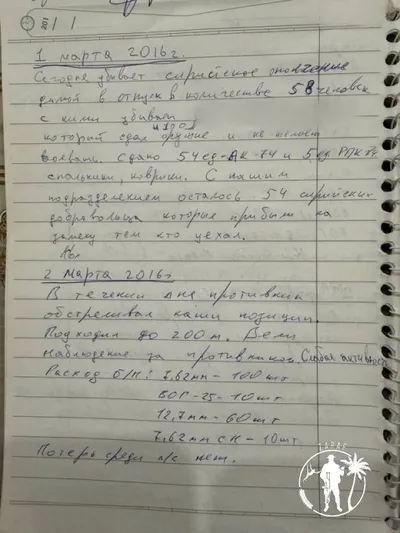 1 марта 2016г.
Сегодня убывает сирийское ополчение
домой в отпуск в количестве 58 человек
с ними убывает
который сдал оружие и не желает
воевать. Сдано 54 ед-АК-74 и 5 ед РПК 74
спальники, коврики. С нашим
подразделением осталось 54 сирийских
добровольца которые прибыли на
замену тем кто уехал.
2 марта 2016г
В течении дня противник
обстреливал наши позиции.
Подходил до 200 м. Вели
наблюдение за противником. Слабая активность
Расход б/п: 7,62мм - 100 шт
ВОГ-25 - 10шт
12,7мм - 60шт
7,62мм СН - 10шт
Потерь среди л/с нет.